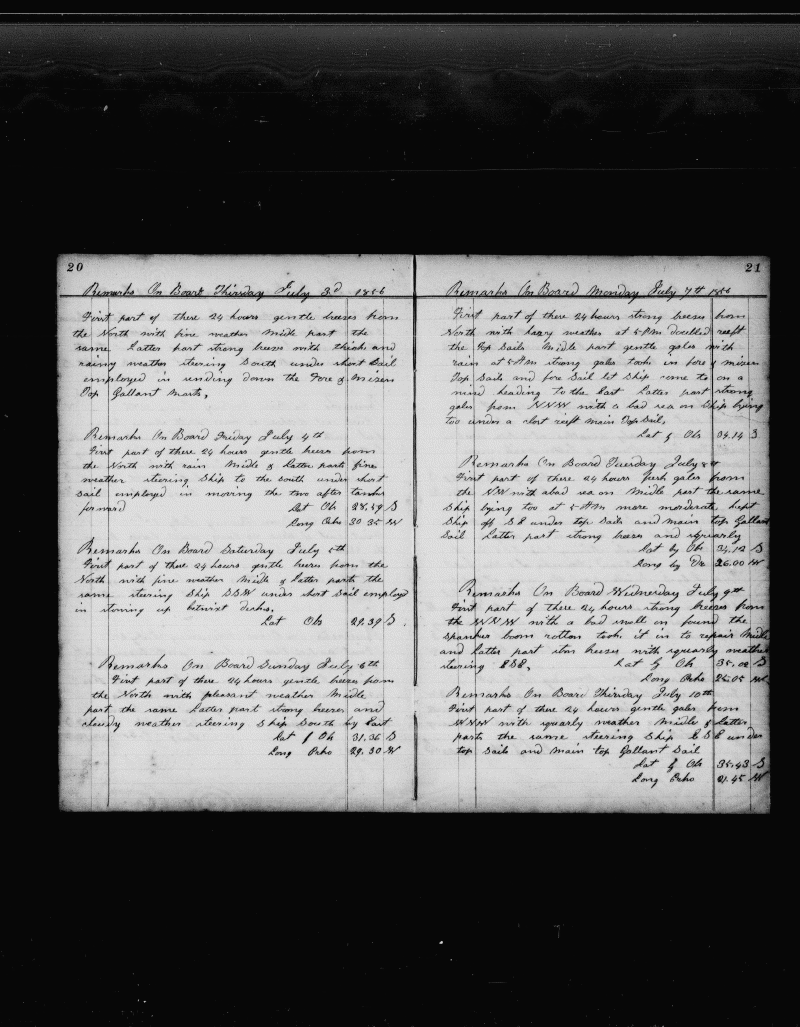 20
Remarks On Board Thirsday July 3d 1856
First part of these 24 hours gentle breezes from
the North with fine weather Midle part the
same Latter part strong breezes with thick and
rainy weather steering South under short Sail
employed in sending down the Fore & Mizen
Top Gallant Masts,
Remarks On Board Friday July 4th
First part of these 24 hours gentle breezes from
the North with rain Midle & Latter parts fine
weather steering Ship to the South under short
sail employed in moving the two after
forward Lat Ob 28.59 S
Long Orho 30 35 W
Remarks On Board Saturday July 5th
First part of these 24 hours gentle breezes from the
North with fine weather Midle & Latter parts the
same steering Ship SSW under short sail employed
in stowing up betwixt decks.
Lat Ob 29.39 S.
Remarks On Board Sunday July 6th
First part of these 24 hours gentle breezes from
the North with pleasant weather Midle
part the same Latter part strong breezes and
cloudy weather steering Ship South by East
Lat Ob 31.36 S
Long Orho 29.30 W
21
Remarks On Board Monday July 7th 1856
First part of these 24 hours strong breezes from
North with hazy weather at 5 PM doubled reeft
the Top Sails Midle part gentle gales with
rain at 5 AM strong gales took in fore & mizen
Top Sails and fore Sail let Ship come to on a
wind heading to the East Latter part strong
gales from NNW with a bad sea on Ship lying
too under a clost reeft main Top Sail,
Lat by Ob 34.14 S
Remarks On Board Tuesday July 8th
First part of these 24 hours fresh gales from
the NW with a bad sea on Midle part the same
Ship lying too at 5 AM more morderate kept
Ship off SE under top Sails and main top Gallant
Sail Latter part strong breezes and squarly
Lat by Ob 34.12 S
Long by Dr 26.00 W
Remarks On Board Wednesday July 9th
First part of these 24 hours strong breezes from
the NNW with a bad swell on found the
spanker boom rotton took it in to repair Midle
and Latter part breezes with squarly weather
steering ESE, Lat by Ob 35.02 S
Long Orho 25.05 W
Remarks On Board Thirsday July 10th
First part of these 24 hours gentle gales from
NNW with squarly weather Midle & Latter
parts the same steering Ship ESE under
top Sails and main top Gallant Sail
Lat by Ob 35.43 S
Long Orho 21.45 W